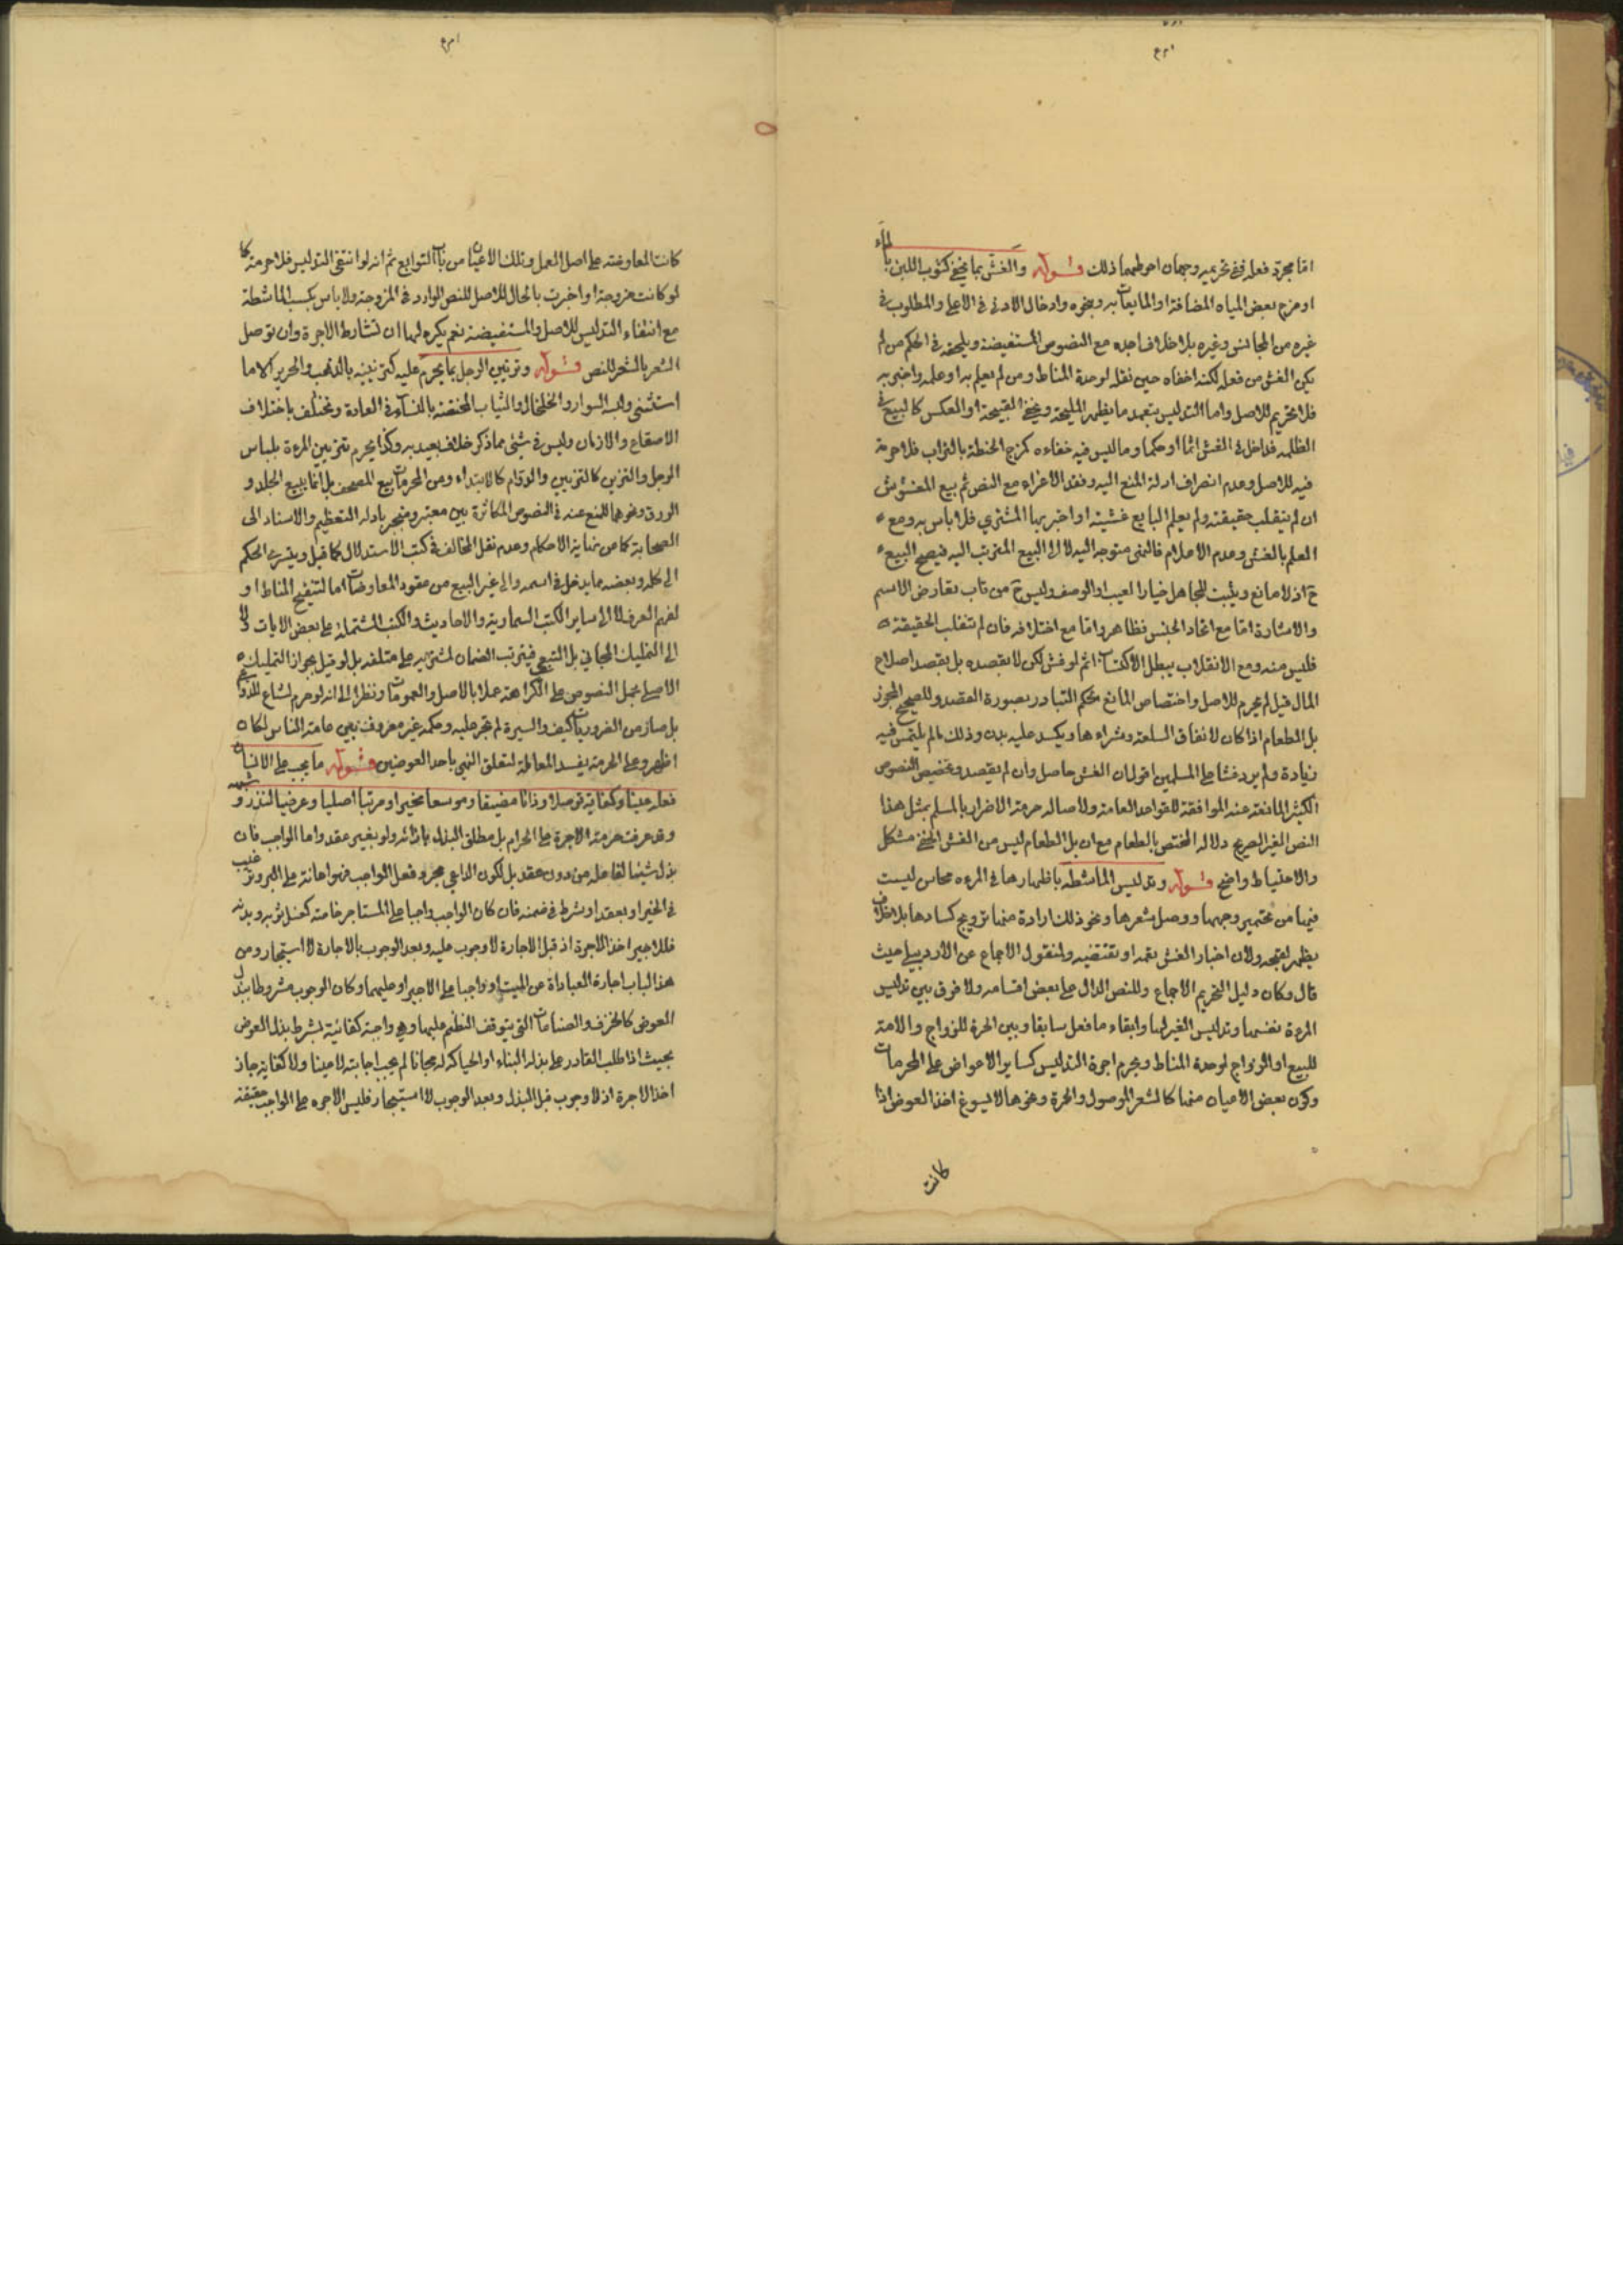 اما مجرد فعله ففي تحريمه وجهان احوطهما ذلك قوله والغش بما يخفى كشوب اللبن بالماء
او مزج بعض المياه المضافة او المايعات به ونحوه وادخال الادنى في الاعلى والمطلوب في
غيره من المجانس وغيره بلا خلاف اجده مع النصوص المستفيضة ويلحقه في الحكم من لم
يكن الغش من فعله لكنه اخفاه حين نقله لوحدة المناط ومن لم يعلم به او علمه واخبر به
فلا تحريم للاصل واما التدليس بتعمد ما يظهر المليحة ويخفي القبيحة او العكس كالبيع في
الظلمه فداخل في الغش اثما او حكما وما ليس فيه خفاءه كمزج الحنطة بالتراب فلا حرمة
فيه للاصل وعدم انصراف ادلة المنع اليه وفقد الاغراء مع النص ثم بيع المغشوش
ان لم ينقلب حقيقته ولم يعلم البايع غشيته او اخبر بها المشتري فلا باس به ومع
العلم بالغش وعدم الاعلام فالنهي متوجه اليه لا الى البيع المترتب اليه فيصح البيع
ح اذ لا مانع ويثبت للجاهل خيار العيب او الوصف وليس ح من باب تعارض الاسم
والاشارة اما مع اتحاد الجنس فظاهر واما مع اختلافه فان لم تنقلب الحقيقة
فليس منه ومع الانقلاب يبطل الاكتساب ثم لو غش لكن لا بقصده بل بقصد اصلاح
المال قيل لم يحرم للاصل واختصاص المانع بحكم التبادر بصورة القصد وللصحيح المجوز
بل الطعام اذا كان لانفاق السلعة وشراءها ويكسد عليه بدونه وذلك ما لم يلتمس فيه
زيادة ولم يرد غشا على المسلمين اقول ان الغش حاصل وان لم يقصد وتخصيص النصوص
الكثير المانعة عنه الموافقة للقواعد العامة ولاصاله حرمة الاضرار بالمسلم بمثل هذا
النص الغير الصريح دلاله المختص بالطعام مع ان بل الطعام ليس من الغش الخفي مشكل
والاحتياط واضح قوله وتدليس الماشطه باظهارها في المرءه محاسن ليست
فيها من تحمير وجهها ووصل شعرها ونحو ذلك ارادة منها ترويج كسادها بلا خلاف
يظهر لقبحه ولان اخبار الغش تعمه او تقتضيه ولمنقول الاجماع عن الاردبيلي حيث
قال وكان دليل التحريم الاجماع وللنص الدال على بعض اقسامه ولا فرق بين تدليس
المرءة نفسها وتدليس الغير لها وابقاء ما فعل سابقا وبين الحرة للزواج والامة
للبيع او الزواج لوحدة المناط ويحرم اجرة التدليس كساير الاعواض على المحرمات
وكون بعض الاعيان منها كالشعر الموصول والحمرة ونحوها لا يسوغ اخذ العوض اذا
كانت
كانت المعاوضه على اصل العمل وتلك الاعيان من باب التوابع ثم انه لو انتفى التدليس فلا حرمة كما
لو كانت مزوجة او اخبرت بالحال للاصل للنص الوارد في المزوجة ولا باس بكسب الماشطة
مع انتفاء التدليس للاصل والمستفيضة نعم يكره لها ان تشارط الاجرة وان توصل
الشعر بالشعر للنص قوله وتزيين الرجل بما يحرم عليه كتزيينه بالذهب والحرير الا ما
استثنى ولبس السوار والخلخال والثياب المختصة بالنساء في العادة وتختلف باختلاف
الاصقاع والازمان وليس في شيئ مما ذكر خلاف يعيد به وكذا يحرم تزيين المرءة بلباس
الرجل والتزين كالتزيين والدوام كالابتداء ومن المحرمات بيع المصحف بل انما يبيع الجلد و
الورق ونحوهما للمنع عنه في النصوص المتكاثرة بين معتبر ومنجبر بادله التعظيم والاسناد الى
الصحابة كما عن نهاية الاحكام وعدم نقل المخالف في كتب الاستدلال كما قيل ويسرى الحكم
الى كله وبعضه ما يدخل في اسمه والى غير البيع من عقود المعاوضات اما لتنقيح المناط او
لفهم العرف لا الى ساير الكتب السماوية والاحاديث والكتب المشتملة على بعض الايات ولا
الى التمليك المجاني بل التبعي فيترتب الضمان لمشتريه على متلفه بل لو قيل بجواز التمليك
الاصلي بحمل النصوص على الكراهة عملا بالاصل والعمومات ونظرا الى انه لو حرم لشاع
بل صار من الضروريات كيف والسيرة لم تجر عليه وحكمه غير معروف بين عامة الناس لكان
اظهر وعلى الحرمة يفسد المعاملة لتعلق النهي باحد العوضين قوله ما يجب على الانسان
فعله عينا وكفاية توصلا وذاتا مضيقا وموسعا مخيرا ومرتبا اصليا وعرضيا لنذر وشبهه
وقد عرفت حرمة الاجرة على الحرام بل مطلق البذل بازائه ولو بغير عقد واما الواجب فان
بذل شيئا لفاعله من دون عقد بل لكون الداعي مجرد فعل الواجب فهو اعانة على البر وترغيب
في الخير او بعقد او شرط في ضمنه فان كان الواجب واجبا على المستاجر خاصة كغسل ثوبه وبدنه
فللاجير اخذ الاجرة اذ قبل الاجارة لا وجوب عليه وبعد الوجوب بالاجارة لا استيجار ومن
هذا الباب اجارة العبادة عن الميت او واجبا على الاجير او عليهما وكان الوجوب مشروطا ببذل
العوض كالحرف والصناعات التي يتوقف النظم عليها وهي واجبة كفائية بشرط بذل العوض
بحيث اذا طلب القادر على بذله البناء او الحياكه له مجانا لم يجب اجابته لا عينا ولا كفاية جاز
اخذ الاجرة اذ لا وجوب قبل البذل وبعد الوجوب لا استيجار فليس الاجره على الواجب حقيقة